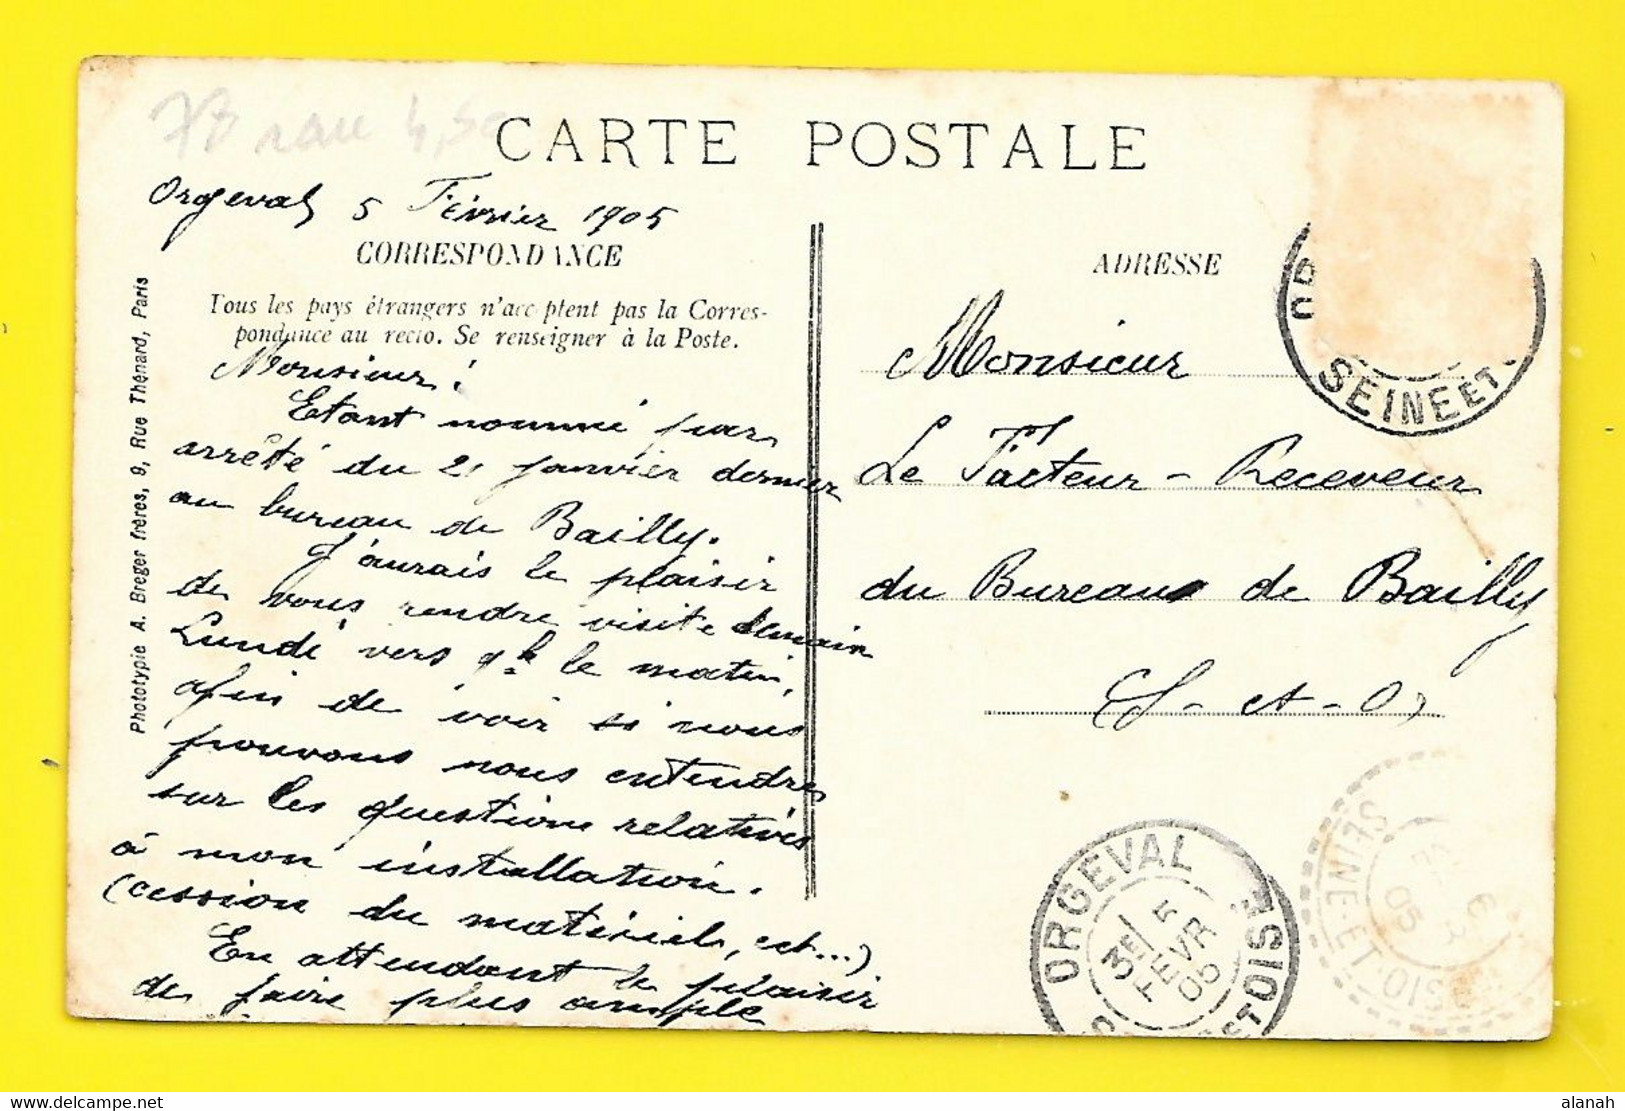 78 rare 4,50
CARTE POSTALE
Orgeval 5 Février 1905
CORRESPONDANCE
Tous les pays étrangers n'acceptent pas la Corres-
pondance au recto. Se renseigner à la Poste.
Monsieur!
Etant nommé par
arrêté du 21 janvier dernier
au bureau de Bailly.
J'aurais le plaisir
de vous rendre visite demain
Lundi vers 9h le matin,
afin de voir si nous
pouvons nous entendre
sur les questions relatives
à mon installation.
(cession du matériel, ect...)
En attendant le plaisir
de faire plus ample
Phototypie A. Breger frères, 9, Rue Thénard, Paris
ADRESSE
Monsieur
Le Facteur-Receveur
du Bureau de Bailly
(S-et-O)
SEINE ET
ORGEVAL
3E / 5
FEVR
05
ET OISE
SEINE-ET-OISE
6
05
alanah